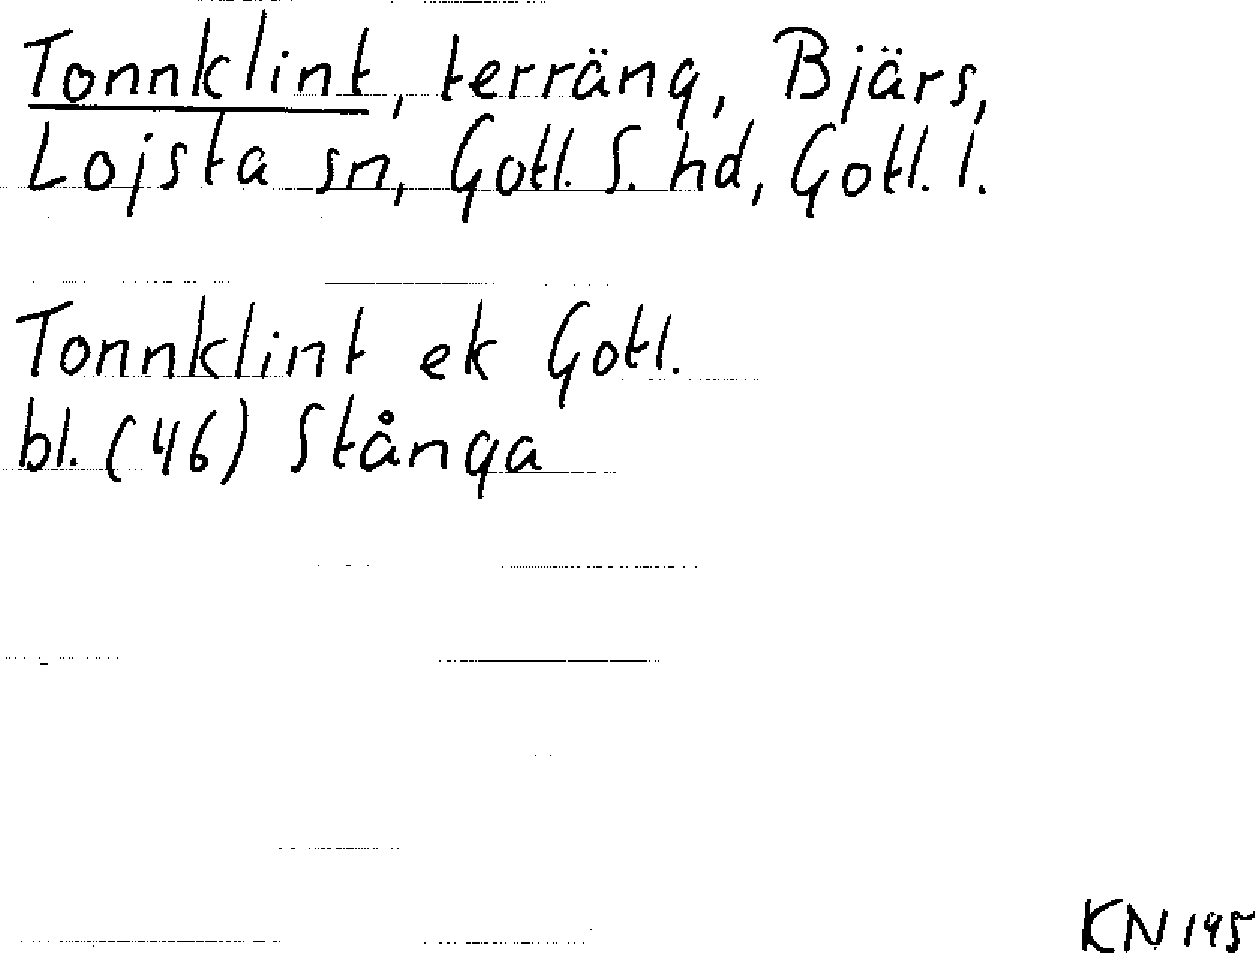 Tonnklint, terräng, Bjärs,
Lojsta sn, Gotl. S. hd, Gotl. l.
Tonnklint ek Gotl.
bl. (46) Stånga
KN 195